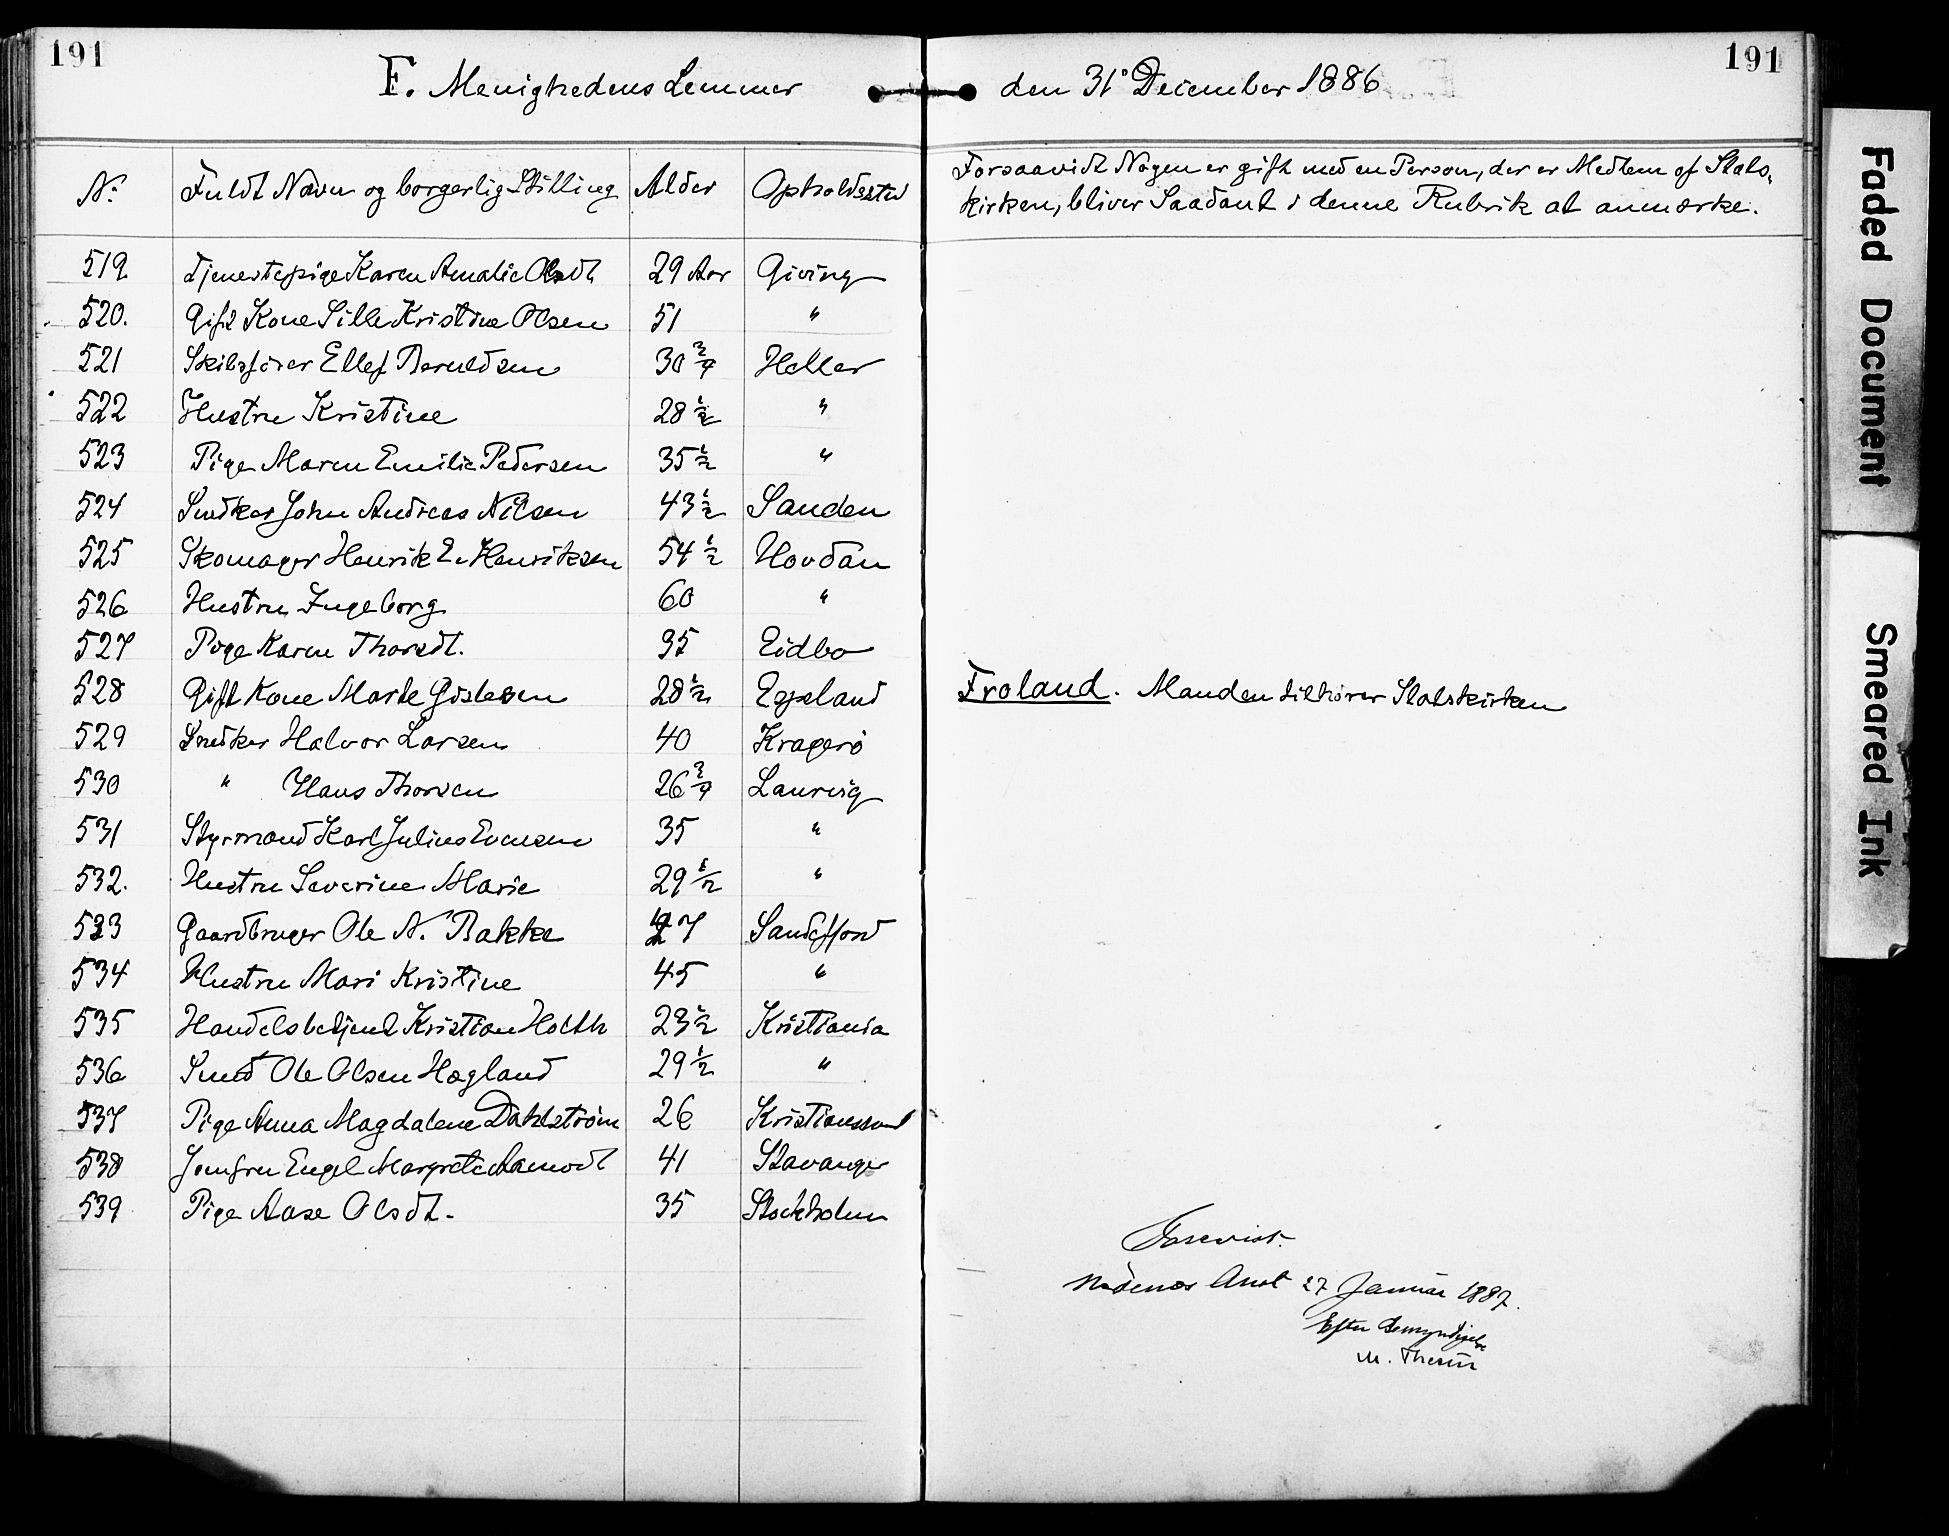 191
F. Menighedens Lemmer den 31' December 1886
191
No. Fuldt Navn og borgerlig Stilling Alder Opholdssted Forsaavidt Nogen er gift med en Person, der er Medlem af Stats-
kirken, bliver Saadant i denne Rubrik at anmærke.
519 Tjenestepige Karen Amalie Olsdt 29 Aar Giving
520. Gift Kone Sille Kristine Olsen 51 "
521 Skibsfører Ellef Beruldsen 30 3/4 Heller
522 Hustru Kristine 28 1/2 "
523 Pige Maren Emilie Pedersen 35 1/2 "
524 Snedker John Andreas Nilsen 43 1/2 Sanden
525 Skomager Henrik E. Henriksen 54 1/2 Hovdan
526 Hustru Ingeborg 60 "
527 Pige Karen Thorsdt. 35 Eidbo
528 Gift Kone Marte Gislesen 28 1/2 Egeland Froland. Manden tilhører Statskirken
529 Snedker Halvor Larsen 40 Kragerö
530 " Hans Thorsen 26 3/4 Laurvig
531 Styrmand Karl Julius Evensen 35 "
532. Hustru Severine Marie 29 1/2 "
533 Gaardbruger Ole N. Bakke 47 Sandefjord
534 Hustru Mari Kristine 45 "
535 Handelsbetjent Kristian Holth 23 1/2 Kristiania
536 Sned Ole Olsen Hegland 29 1/2 "
537 Pige Anna Magdalene Dahlström 26 Kristianssand
538 Jomfru Engel Margrete Aamodt 41 Stavanger
539 Pige Aase Olsdt. 35 Stockholm
Forevist.
Nedenæs Amt 27 Januar 1887.
Efter Bemyndigelse
M.
Faded Document
Smeared Ink